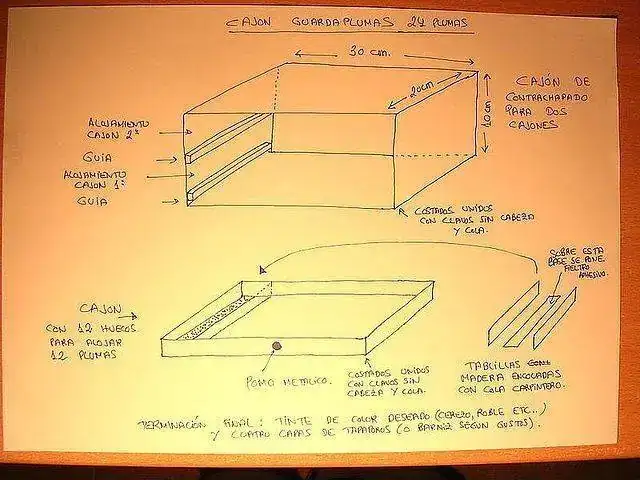 CAJON GUARDAPLUMAS 24 PLUMAS
30 cm.
20cm
10cm
CAJÓN DE
CONTRACHAPADO
PARA DOS
CAJONES
ALOJAMIENTO
CAJON 2º
GUIA
ALOJAMIENTO
CAJON 1º
GUIA
COSTADOS UNIDOS
CON CLAVOS SIN CABEZA
Y COLA.
SOBRE ESTA
BASE SE PONE
FIELTRO
ADHESIVO.
CAJON
CON 12 HUECOS
PARA ALOJAR
12 PLUMAS
POMO METALICO.
COSTADOS UNIDOS
CON CLAVOS SIN
CABEZA Y COLA.
TABLILLAS
MADERA ENCOLADAS
CON COLA CARPINTERO.
TERMINACIÓN FINAL: TINTE DE COLOR DESEADO (CEREZO, ROBLE ETC..)
Y CUATRO CAPAS DE TAPAPOROS (O BARNIZ SEGUN GUSTOS).